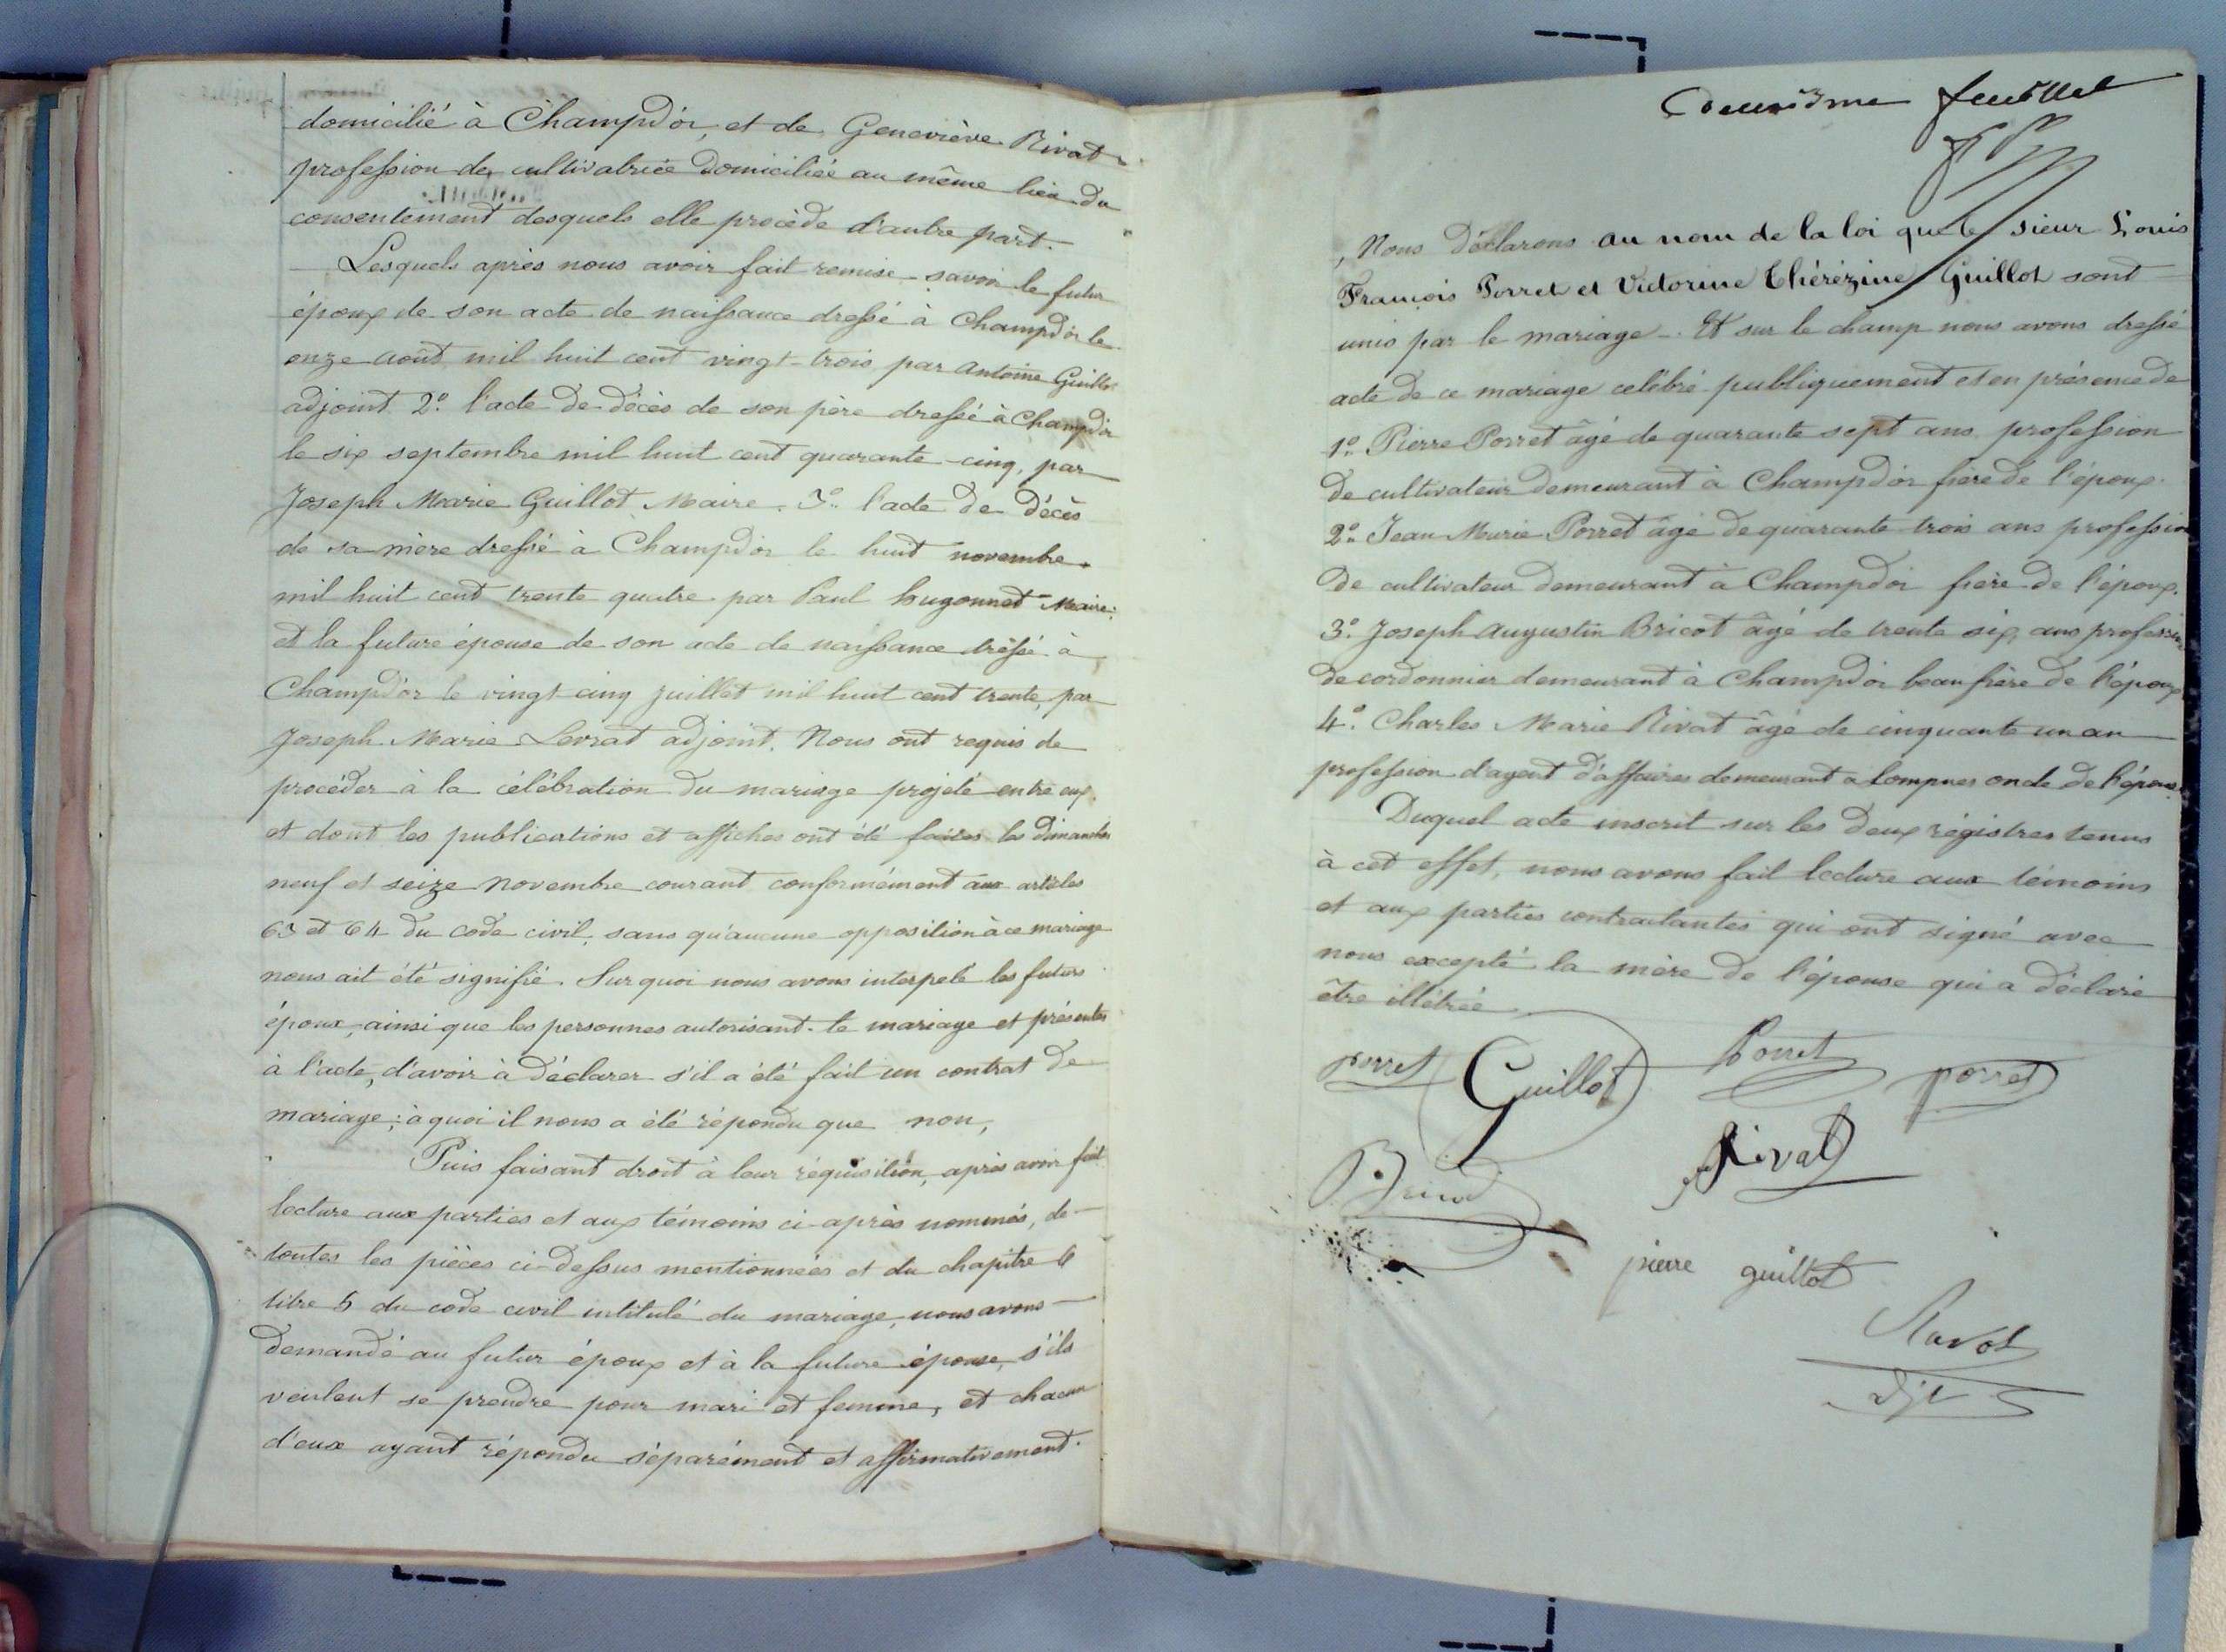 domicilié à Champdor, et de Geneviève Rivat
profession de cultivatrice domiciliée au même lieu du
consentement desquels elle procède d'autre part.
Lesquels après nous avoir fait remise savoir le futur
époux de son acte de naissance dressé à Champdor le
onze août mil huit cent vingt-trois par Antoine Guillot
adjoint 2° l'acte de décès de son père dressé à Champdor
le six septembre mil huit cent quarante-cinq, par
Joseph Marie Guillot Maire. 3° l'acte de décès
de sa mère dressé à Champdor le huit novembre
mil huit cent trente quatre par Paul hugonnet Maire;
et la future épouse de son acte de naissance dressé à
Champdor le vingt cinq juillet mil huit cent trente, par
Joseph Marie Levrat adjoint. Nous ont requis de
procéder à la célébration du mariage projeté entre eux
et dont les publications et affiches ont été faites les dimanches
neuf et seize novembre courant conformément aux articles
63 et 64 du code civil, sans qu'aucune opposition à ce mariage
nous ait été signifié. Sur quoi nous avons interpelé les futurs
époux, ainsi que les personnes autorisant le mariage et présentes
à l'acte, d'avoir à déclarer s'il a été fait un contrat de
mariage; à quoi il nous a été répondu que non,
Puis faisant droit à leur réquisition, après avoir fait
lecture aux parties et aux témoins ci-après nommés, de
toutes les pièces ci-dessus mentionnées et du chapitre 6
titre 5 du code civil intitulé du mariage, nous avons
demandé au futur époux et à la future épouse, s'ils
veulent se prendre pour mari et femme, et chacun
d'eux ayant répondu séparément et affirmativement.
Deuxième feuillet
, Nous Déclarons au nom de la loi que le sieur Louis
François Porret et Victorine Thérézine Guillot sont
unis par le mariage. Et sur le champ nous avons dressé
acte de ce mariage célébré publiquement et en présence de
1° Pierre Porret âgé de quarante sept ans profession
de cultivateur demeurant à Champdor frère de l'époux.
2° Jean Marie Porret âgé de quarante trois ans profession
de cultivateur demeurant à Champdor frère de l'époux.
3° Joseph Augustin Bricot âgé de trente six ans profession
de cordonnier demeurant à Champdor beau frère de l'époux
4° Charles Marie Rivat âgé de cinquante un an
profession d'agent d'affaires demeurant a Lompnes oncle de l'épouse.
Duquel acte inscrit sur les deux régistres tenus
à cet effet, nous avons fait lecture aux témoins
et aux parties contractantes qui ont signé avec
nous excepté la mère de l'épouse qui a déclaré
être illétrée
porret Guillot Porret porret
Bricot Rivat
pierre guillot